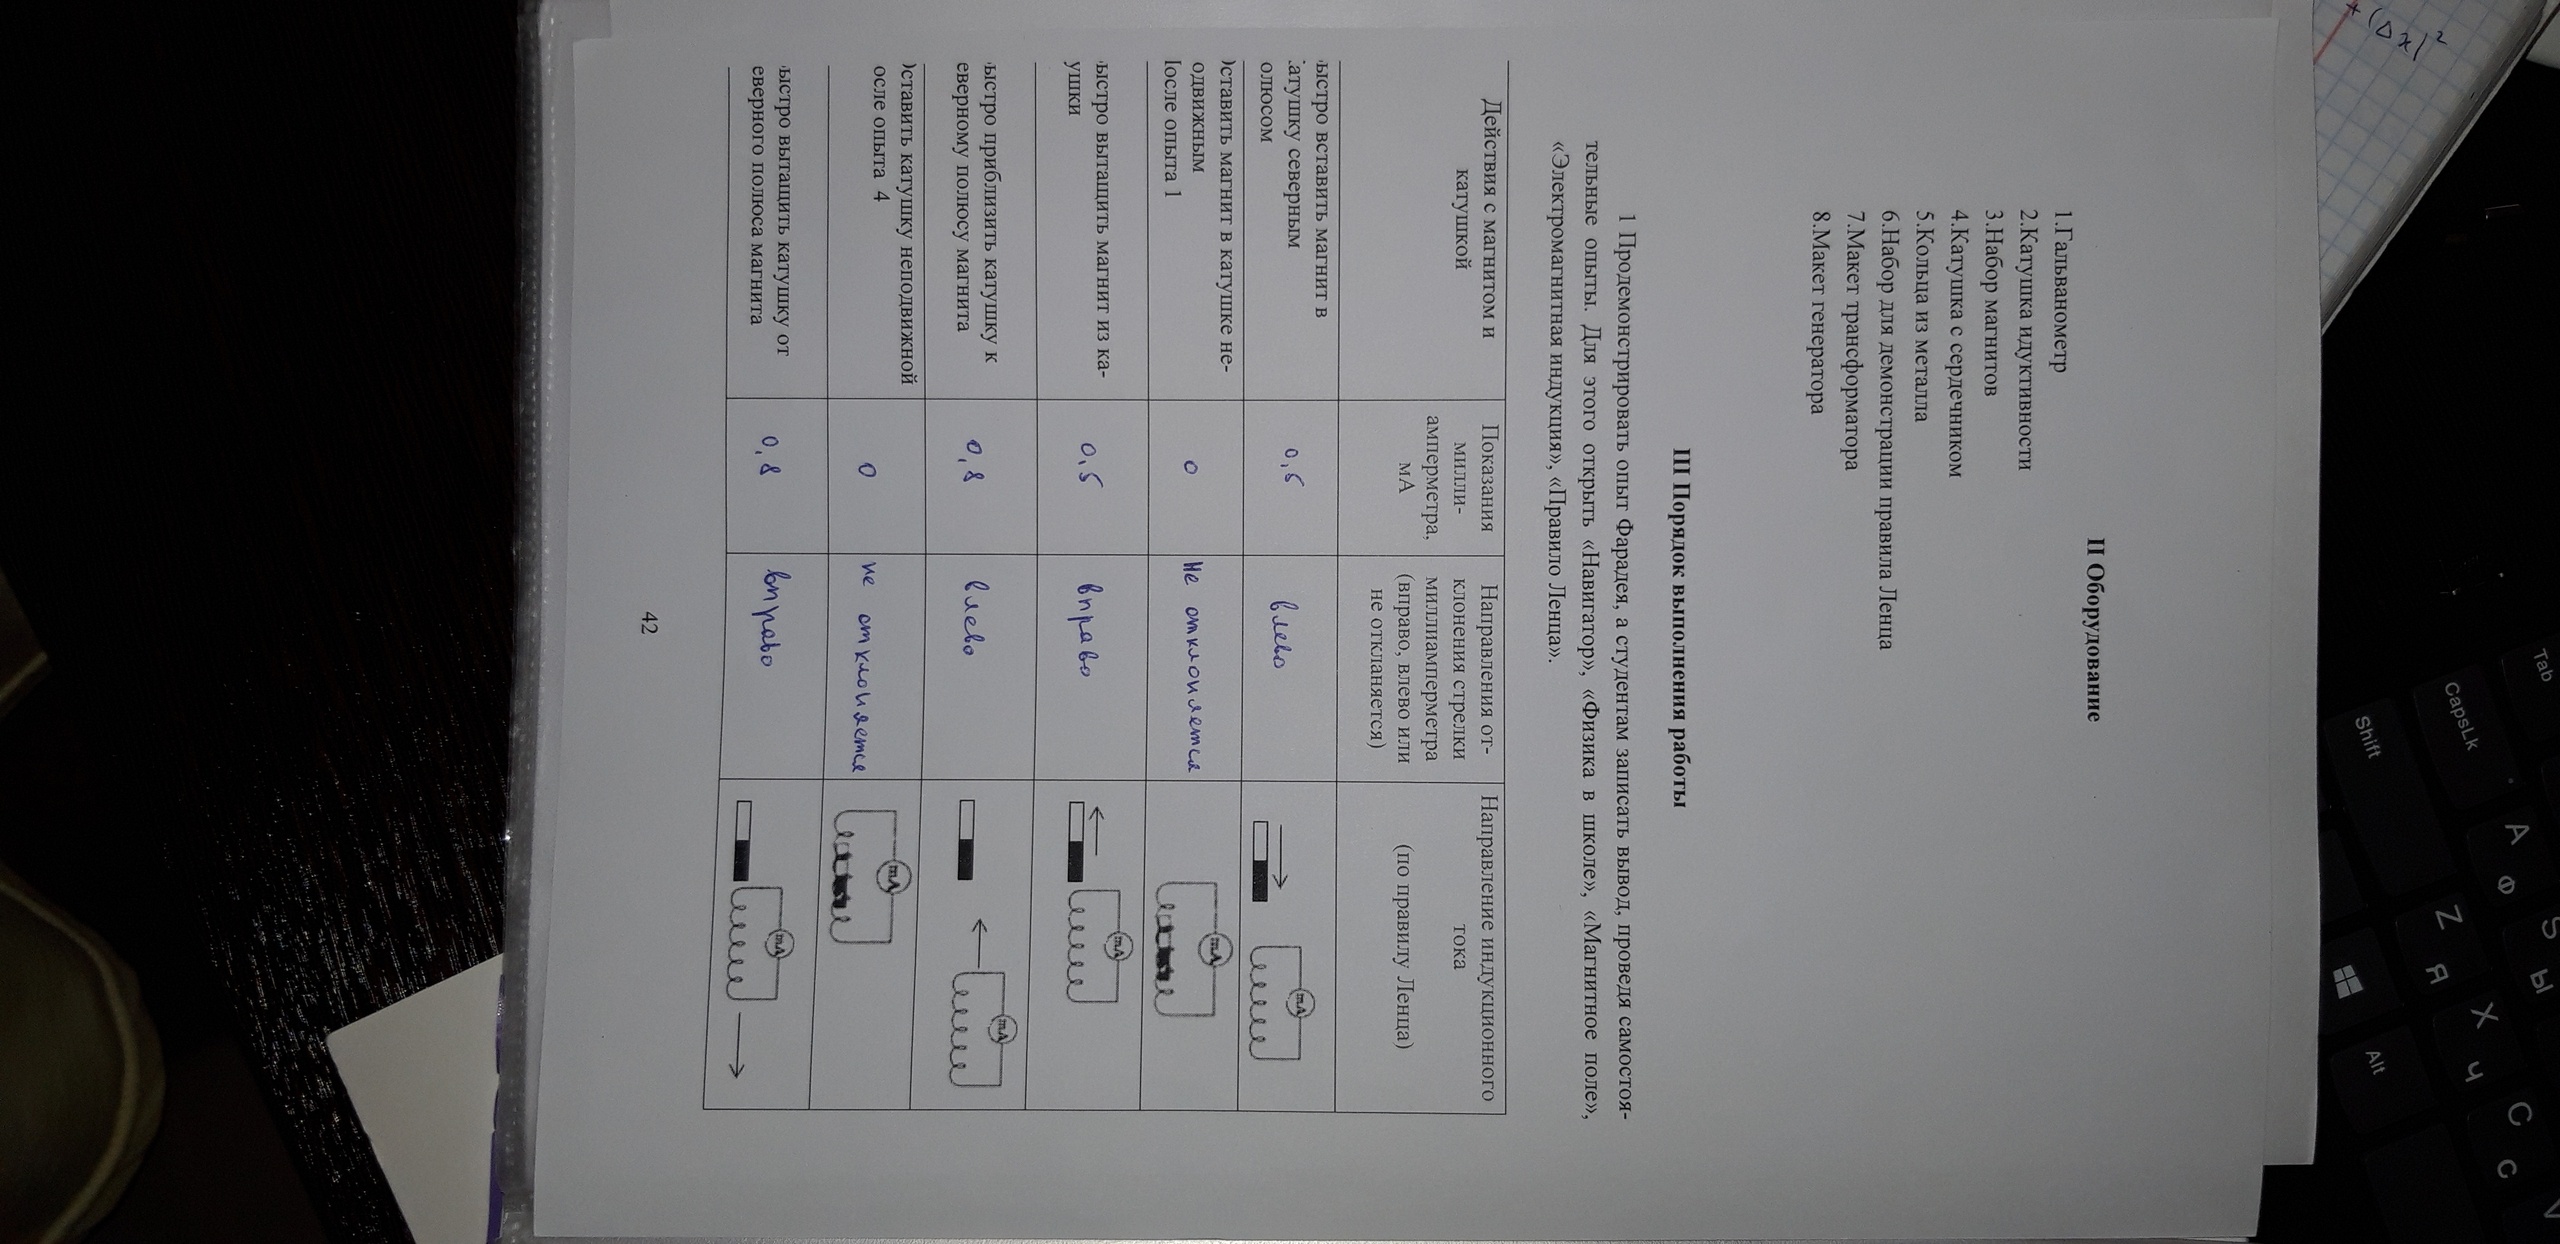 Tab
S
Ы
V
CapsLk
А
Ф
Z
Я
X
Ч
C
С
Shift
Alt
+(Δx)²
II Оборудование
1.Гальванометр
2.Катушка идуктивности
3.Набор магнитов
4.Катушка с сердечником
5.Кольца из металла
6.Набор для демонстрации правила Ленца
7.Макет трансформатора
8.Макет генератора
III Порядок выполнения работы
1 Продемонстрировать опыт Фарадея, а студентам записать вывод, проведя самостоя-
тельные опыты. Для этого открыть «Навигатор», «Физика в школе», «Магнитное поле»,
«Электромагнитная индукция», «Правило Ленца».
Действия с магнитом и
катушкой
Показания
милли-
амперметра,
мА
Направления от-
клонения стрелки
миллиамперметра
(вправо, влево или
не откланяется)
Направление индукционного
тока
(по правилу Ленца)
ыстро вставить магнит в
атушку северным
олюсом
0,5
влево
mA
ставить магнит в катушке не-
одвижным
осле опыта 1
0
Не отклоняется
mA
ыстро вытащить магнит из ка-
ушки
0,5
вправо
mA
ыстро приблизить катушку к
еверному полюсу магнита
0,8
влево
mA
ставить катушку неподвижной
осле опыта 4
0
не отклоняется
mA
ыстро вытащить катушку от
еверного полюса магнита
0,8
вправо
mA
42